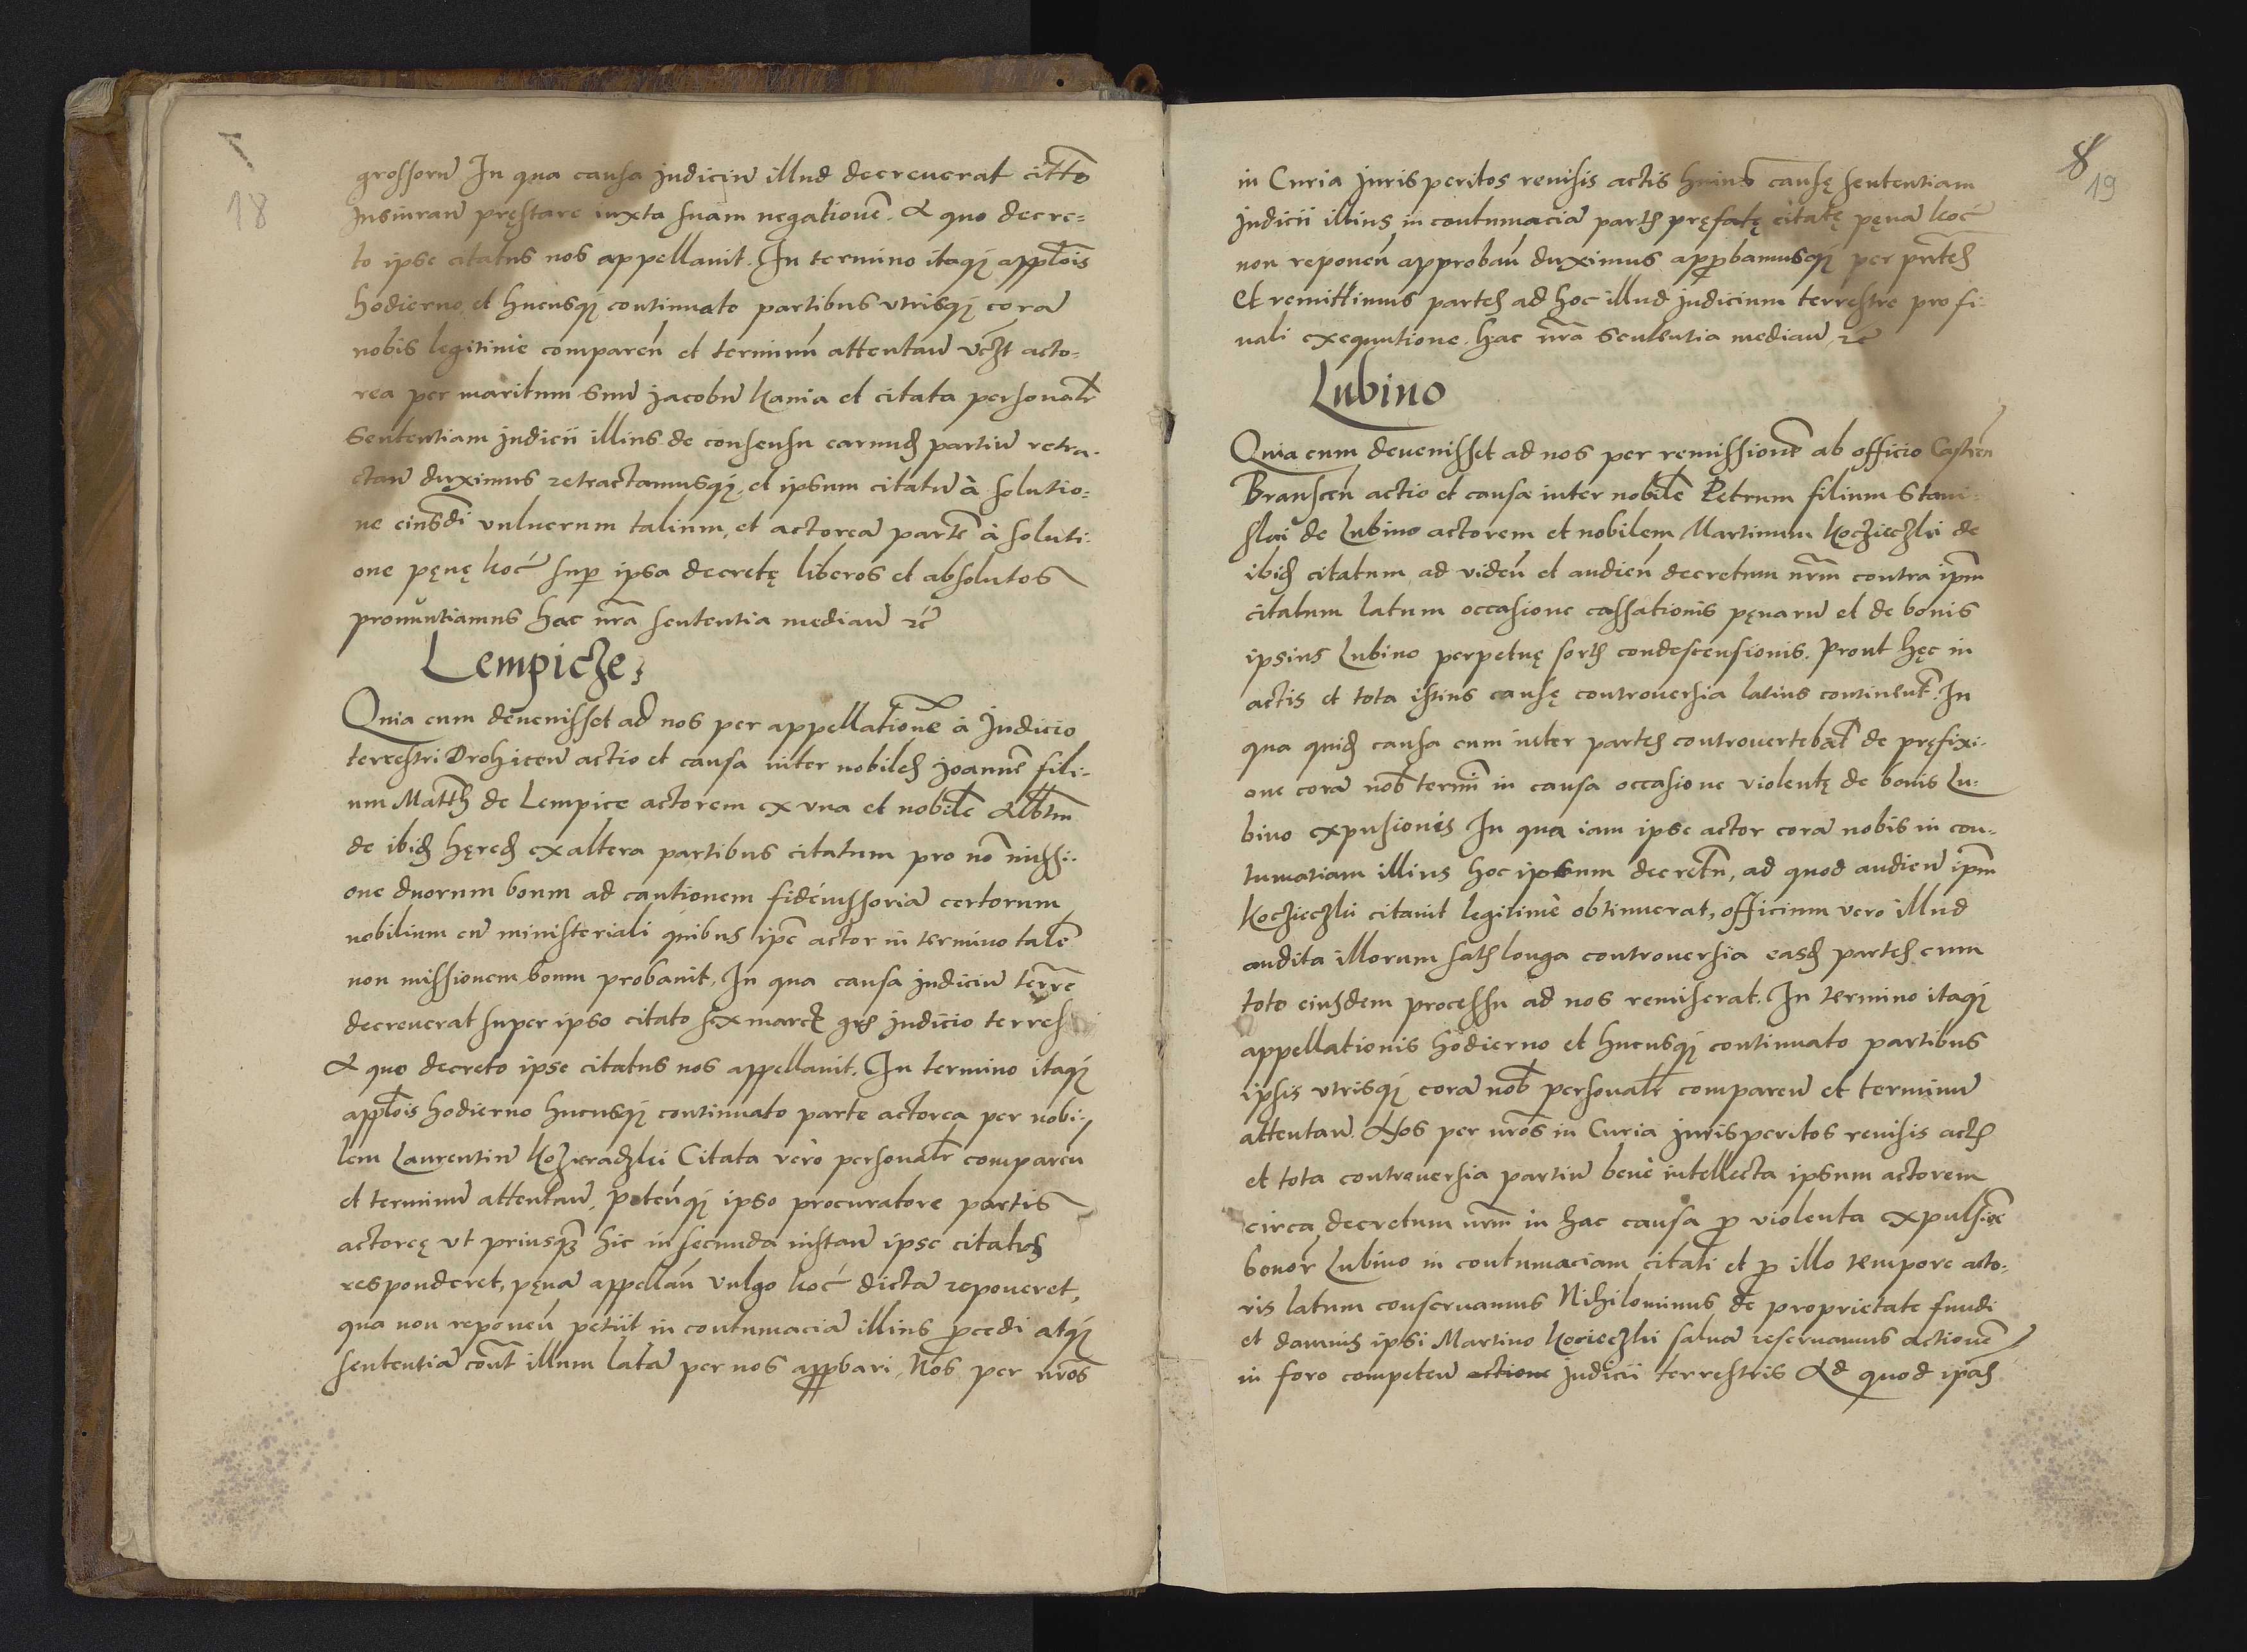 18
grossorū In qua causa Judiciū illud decreuerat citto
Insiuran̄ pręstare iuxta suam negationē. A quo decre-
to ipse citatus nos appellauit. In termino itaqȝ appl̄ois
hodierno et hucusqȝ continuato partibus vtrisqȝ corā
nobis legitime comparen̄ et termīn̄ attentan̄ vczt acto-
rea per maritum suū Jacobū Kania et citata personalr̄
Sententiam Judicii illius de consensu earundȝ partiū retra-
ctan̄ duximus retractamusqȝ, et ipsum citatū à solutio-
ne eiusd̄i vulnerum talium, et actoreā partē à soluti-
one pęnę koć sup̱ ipsa decretę liberos et absolutos
pronuntiamus hac nr̄a sententia median̄ etc̄
Lempicze
Quia cum deuenisset ad nos per appellationē à Judicio
terrestri Drohicen̄ actio et causa inter nobiles Joannē fili-
um Matth de Lempice actorem ex vna et nobilē Albtm̄
de ibidȝ hęredȝ ex altera partibus citatum pro nō missi-
one duorum boum ad cautionem fideiussoriā certorum
nobilium cū ministeriali quibus ip̄e actor in termino talē
non missionem boum probauit. In qua causa Judiciū terr̄e
decreuerat super ipso citato sex marcȝ grȝ Judicio terrestri
A quo decreto ipse citatus nos appellauit. In termino itaqȝ
appl̄ois hodierno hucusqȝ continuato parte actorea per nobi-
lem Laurentiū Kozieradzki Citata vero personalr̄ comparen̄
et terminū attentan̄, Peten̄qȝ ipso procuratore partis
actoreę vt priusqȝ hic in secunda instan̄ ipse citatus
responderet, pęnā appellan̄ vulgo koć dictā reponeret,
qua non reponen̄ petiit in contumaciā illius ꝓcedi atqȝ
sententiā cont̄ illum latā per nos apꝓbari, Nos per nr̄os
8
19
in Curia Jurisperitos reuisis actis huius causę sententiam
Judicii illius in contumaciā partȝ pręfatę citatę pęnā koć
non reponen̄ approban̄ duximus apꝓbamusqȝ per pn̄tes
Et remittimus partes ad hoc illud Judicium terrestre pro fi-
nali exequutione. hac nr̄a Sententia median̄ etc̄
Lubino
Quia cum deuenisset ad nos per remissionē ab officio Castren̄
Branscen̄ actio et causa inter nobilē Petrum filium Stani-
slai de Lubino actorem et nobilem Martinum Koczieczki de
ibidȝ citatum ad viden̄ et audien̄ decretum nr̄m contra ipm̄
citatum latum occasione cassationis pęnarū et de bonis
ipsius Lubino perpetuę sortȝ condescensionis. Prout hęc in
actis et tota istius causę controuersia latius continent̄. In
qua quidȝ causa cum inter partes controuertebat̄ de pręfixi-
one corā nob̄ termin̄ in causa occasione violentę de bonis Lu-
bino expulsionis In qua iam ipse actor corā nobis in con-
tumatiam illius hoc ipsum decretū, ad quod audien̄ ipm̄
Kocziec­zki citauit legitime obtinuerat, officium vero illud
audita illorum satȝ longa controuersia easdȝ partes cum
toto eiusdem processu ad nos remiserat. In termino itaqȝ
appellationis hodierno et hucusqȝ continuato partibus
ipsis vtrisqȝ corā nob̄ personalr̄ comparen̄ et terminū
attentan̄. Nos per nr̄os in Curia Jurisperitos reuisis actȝ
et tota controuersia partiū bene intellecta ipsum actorem
circa decretum nr̄m in hac causa ꝓ violenta expulsiōe
bonor̄ Lubino in contumaciam citati et ꝓ illo tempore acto-
ris latum conseruamus Nihilominus de proprietate fundi
et damnis ipsi Martino Kocieczki saluā reseruamus actionē
in foro competen̄ actione Judicii terrestris Ad quod ip̄as